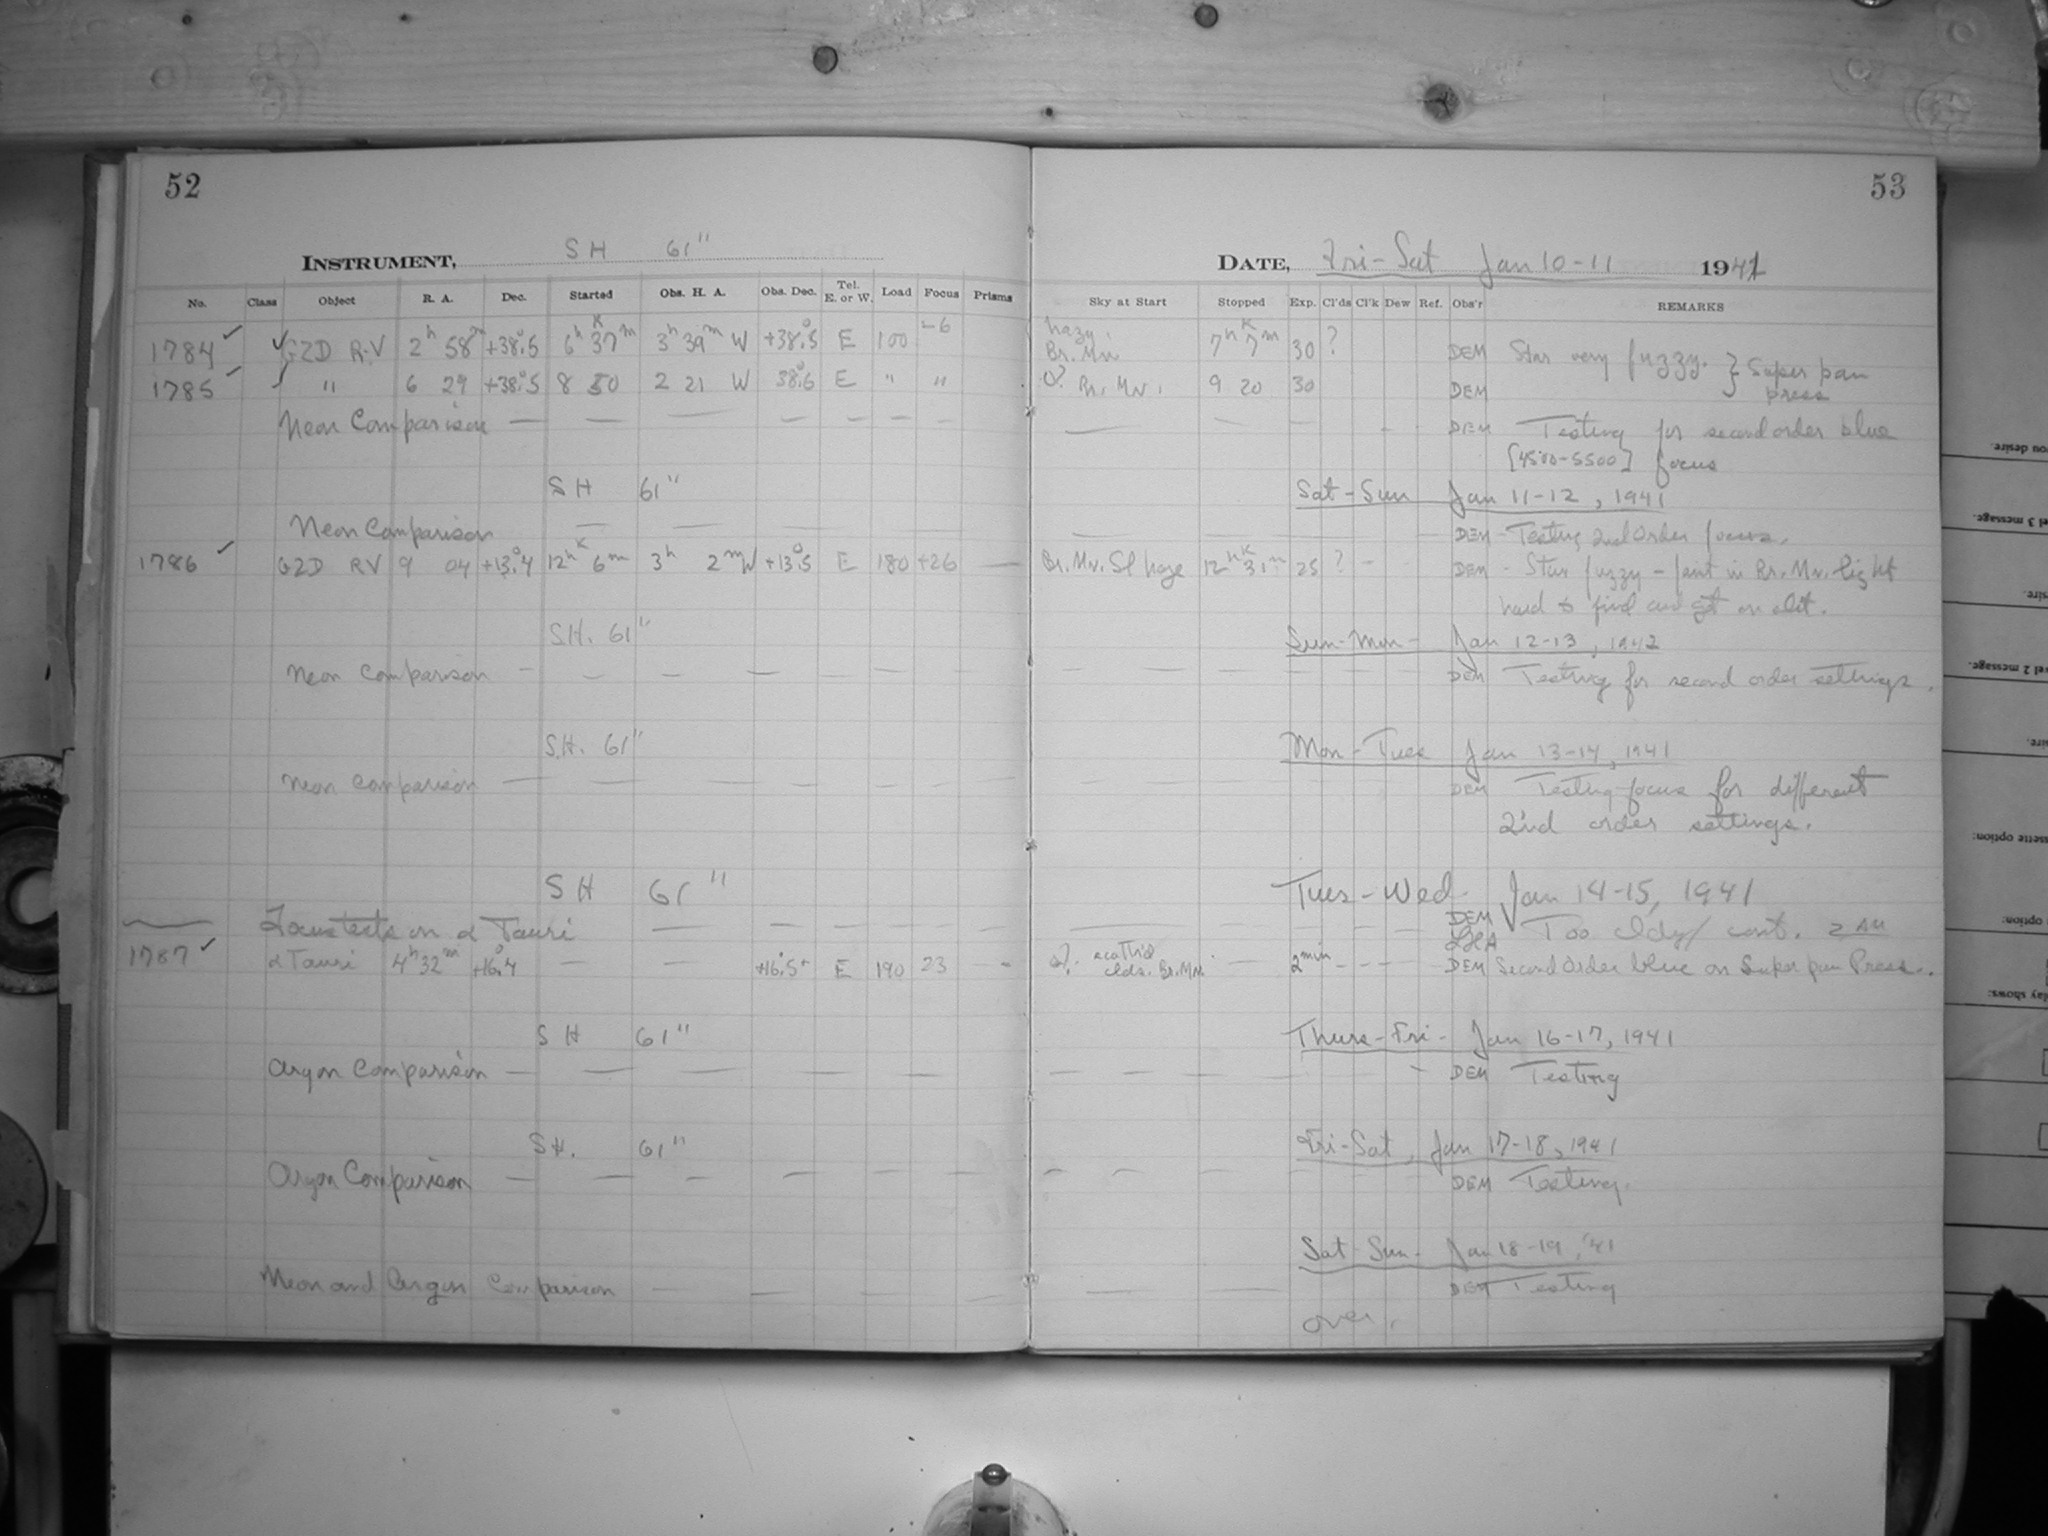 52
INSTRUMENT, SH 61"
No. Class Object R. A. Dec. Started Obs. H. A. Obs. Dec. Tel. E. or W. Load Focus Prisms
1784 ✓ ✓ GZD RV 2h 58m +38°.5 6h K 37m 3h 39m W +38°.5 E 100 -6
1785 ✓ ✓ " 6 29 +38°.5 8 50 2 21 W 38°.6 E " "
Neon Comparison — — — — — — —
SH 61"
Neon Comparison — — — —
1786 ✓ GZD RV 9 04 +13°.4 12h K 6m 3h 2m W +13°.5 E 180 +26 —
S.H. 61"
Neon Comparison — — — — — — —
S.H. 61"
Neon Comparison — — — — — — —
SH 61"
— Focus tests on α Tauri — — — — — —
1787 ✓ α Tauri 4h 32m +16°.4 — — +16°.5 E 190 23 -
SH 61"
Argon Comparison — — — — — — —
SH. 61"
Argon Comparison — — — — — — —
Neon and Argon Comparison — — — — —
53
DATE, Fri-Sat Jan 10-11 1941
Sky at Start Stopped Exp. Cl'ds Cl'k Dew Ref. Obs'r REMARKS
hazy. Br. Mn. 7h K 7m 30 ? DEM Star very fuzzy. } Super pan press
Br. Mn. 9 20 30 DEM
— — — — - DEM Testing for second order blue
[4500-5500] focus
Sat-Sun Jan 11-12, 1941
— — DEM - Testing 2nd order focus.
Br. Mn. Sl haze 12h K 31m 25 ? - - DEM - Star fuzzy - faint in Br. Mn. light
hard to find and get on slit.
Sun-Mon- Jan 12-13, 1942
— — — DEM Testing for second order settings.
Mon-Tues Jan 13-14, 1941
— — DEM Testing focus for different
2nd order settings.
Tues-Wed- Jan 14-15, 1941
— — — DEM Too cldy/ cont.
scatt'd clds. Br. Mn. — 2min - - - DEM Second Order blue on Super pan Press.
Thurs-Fri- Jan 16-17, 1941
— — — - DEM Testing
Fri-Sat, Jan 17-18, 1941
— — — DEM Testing.
Sat-Sun- Jan 18-19, '41
— — DEM Testing
over.